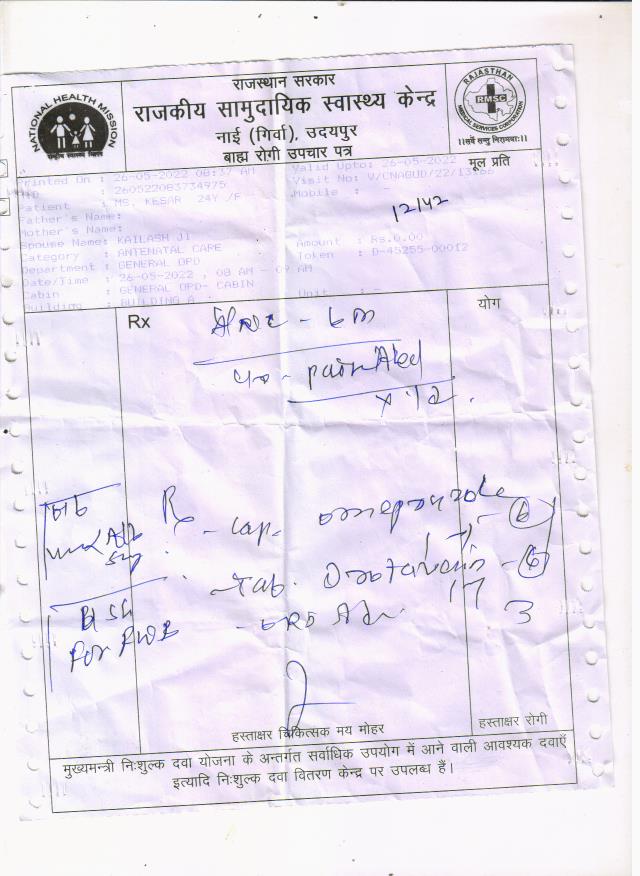 राजस्थान सरकार
राजकीय सामुदायिक स्वास्थ्य केन्द्र
नाई (गिर्वा), उदयपुर
बाह्य रोगी उपचार पत्र
मूल प्रति
NATIONAL HEALTH MISSION
RAJASTHAN
RMSC
MEDICAL SERVICES CORPORATION
।।सर्वे सन्तु निरामयाः।।
Printed On : 26-05-2022 08:37 AM
Valid Upto: 26-05-2022
: 260522083734975
Visit No: V/CNAGUD/22/
Patient : MS. KESAR 24Y /F
Mobile : -
Father's Name:
Mother's Name:
12142
Spouse Name: KAILASH JI
Category : ANTENATAL CARE
Amount : Rs.0.00
Department : GENERAL OPD
Token : D-45255-00012
Date/Time : 26-05-2022 , 08 AM - 09 AM
Cabin : GENERAL OPD- CABIN
Unit : -
Building : BUILDING A
Rx
योग
Rx
- Cap. omeprazole
6
- Tab. Drotaverin - 6
3
For
हस्ताक्षर चिकित्सक मय मोहर
हस्ताक्षर रोगी
मुख्यमन्त्री निःशुल्क दवा योजना के अन्तर्गत सर्वाधिक उपयोग में आने वाली आवश्यक दवाएँ
इत्यादि निःशुल्क दवा वितरण केन्द्र पर उपलब्ध हैं।